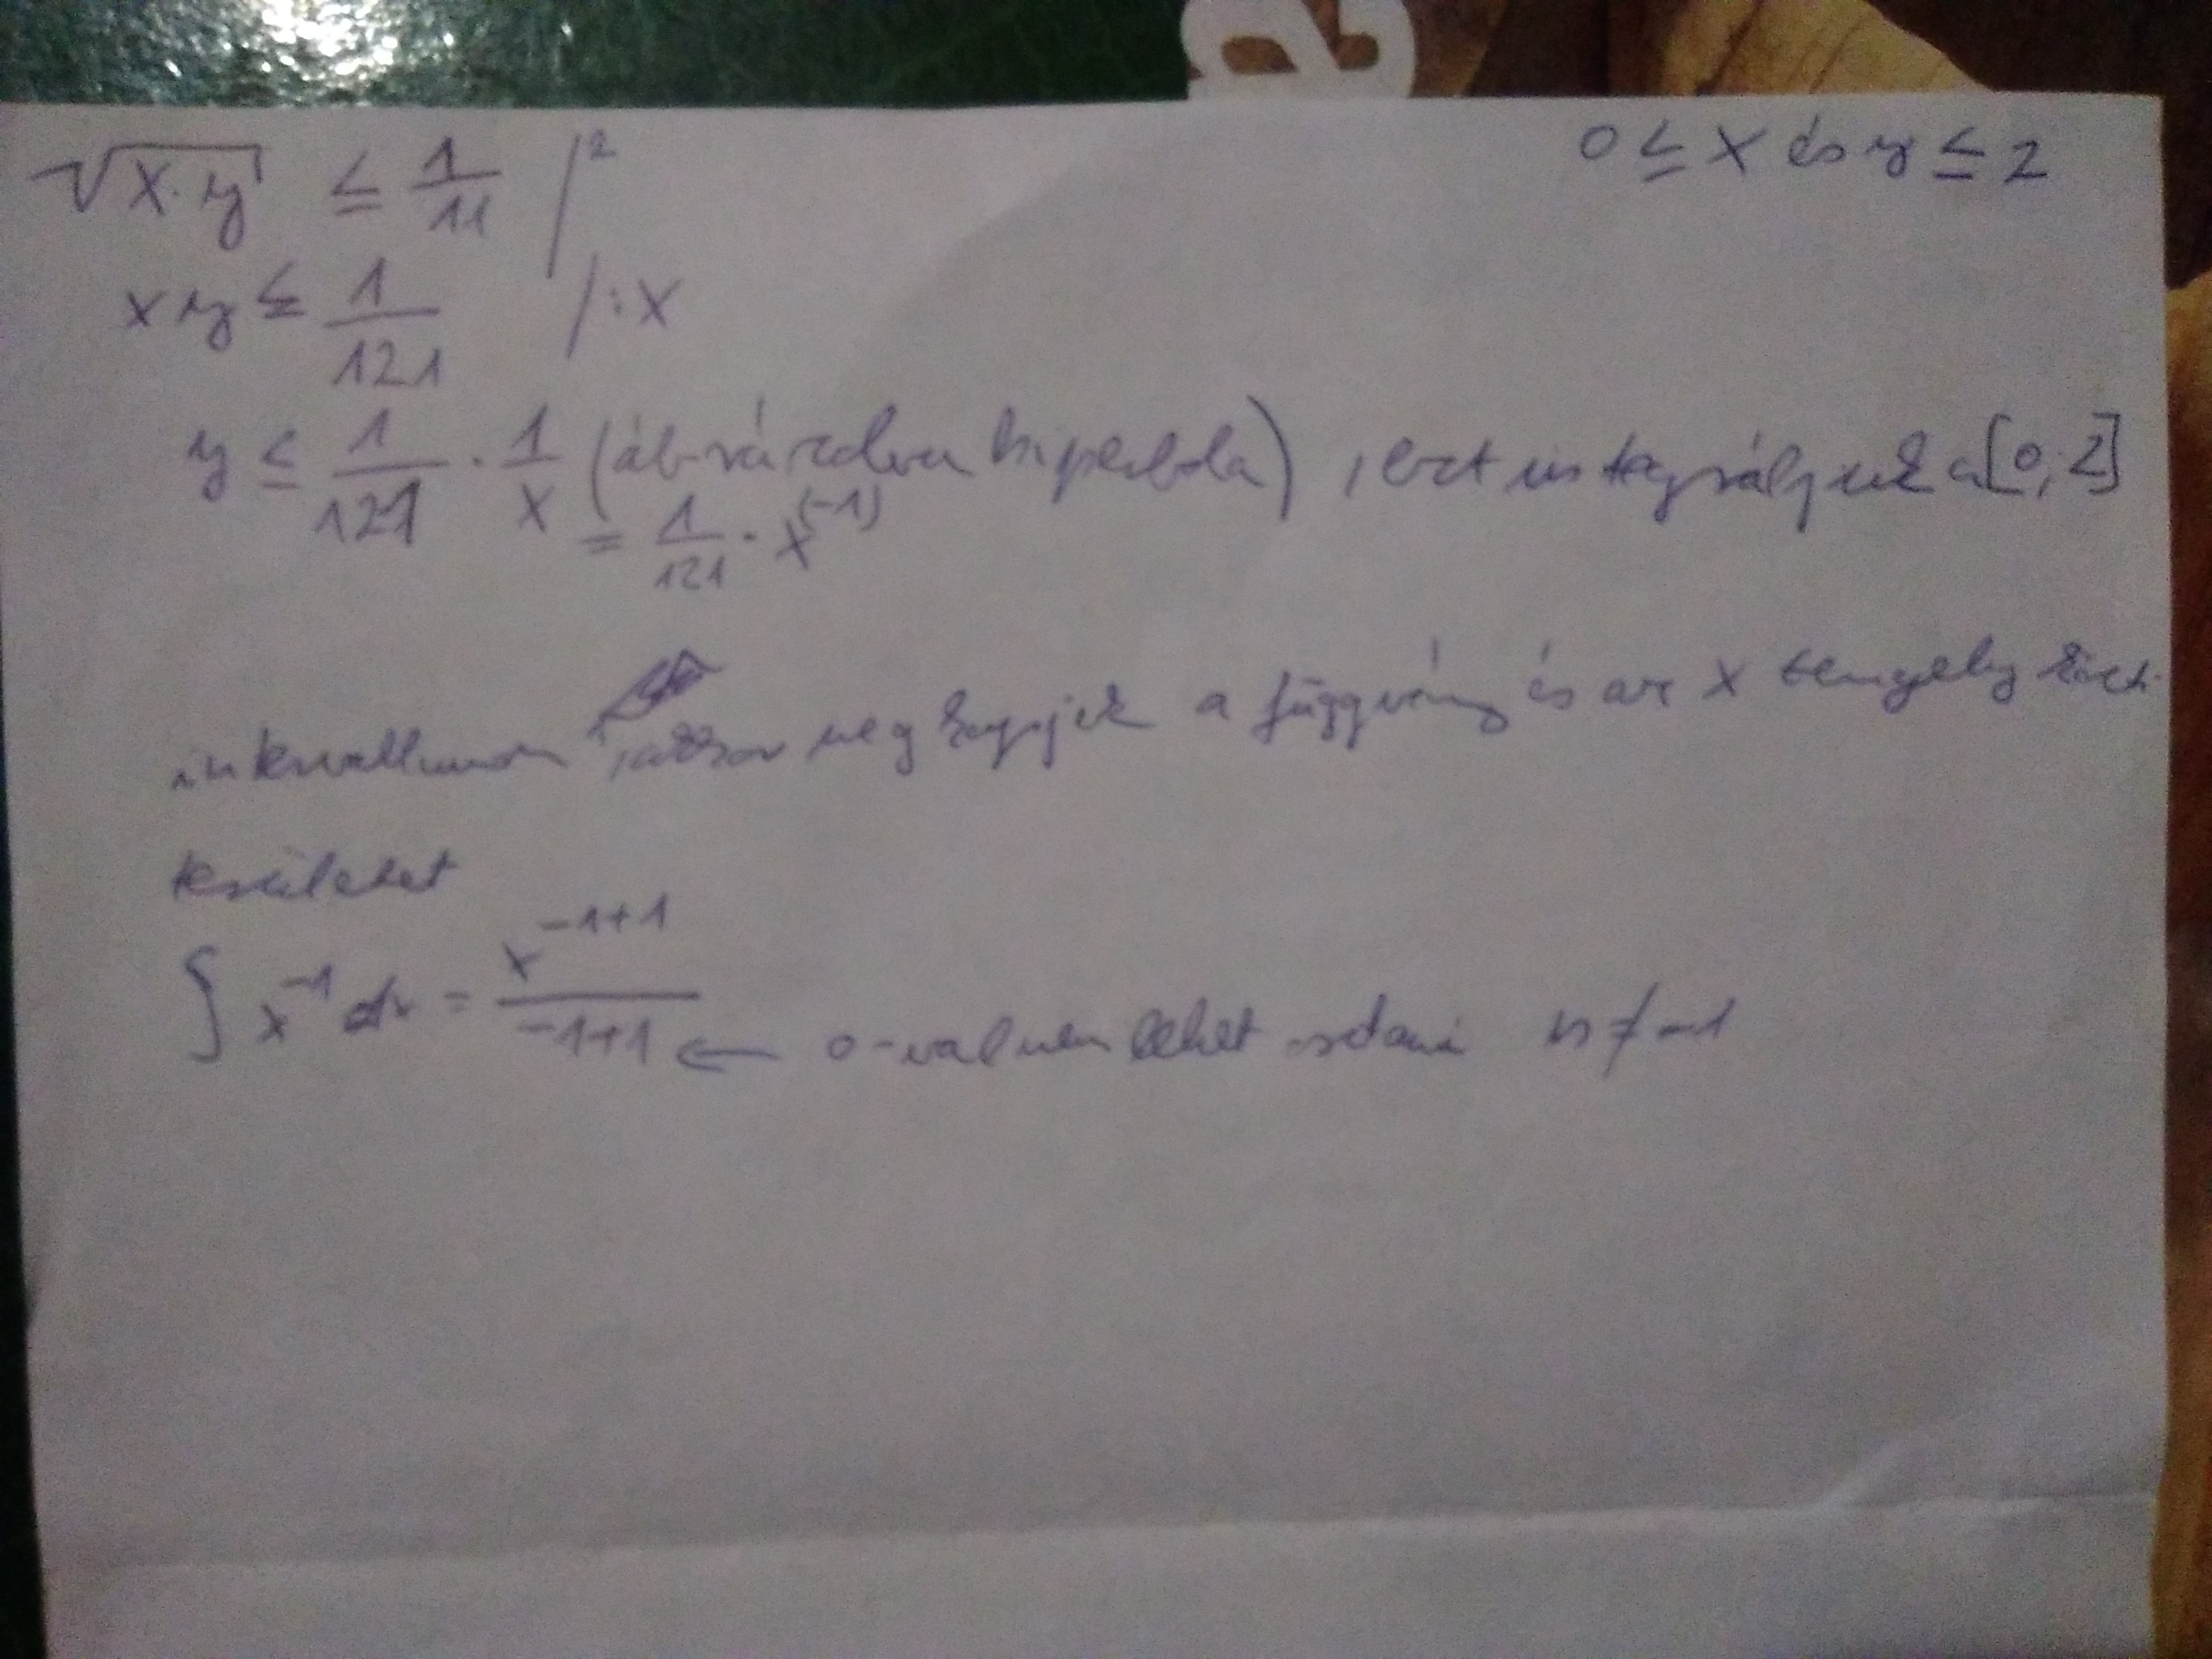 √x·y ≤ 1/11 /²
0 ≤ x és y ≤ 2
xy ≤ 1/121 /:x
y ≤ 1/121 · 1/x (ábrázolva hiperbola), ezt integráljuk a [0;2]
= 1/121 · x^(-1)
intervallumon, akkor megkapjuk a függvény és az x tengely közti
területet
∫ x^-1 dx = x^(-1+1)/(-1+1) ← 0-val nem lehet osztani n ≠ -1